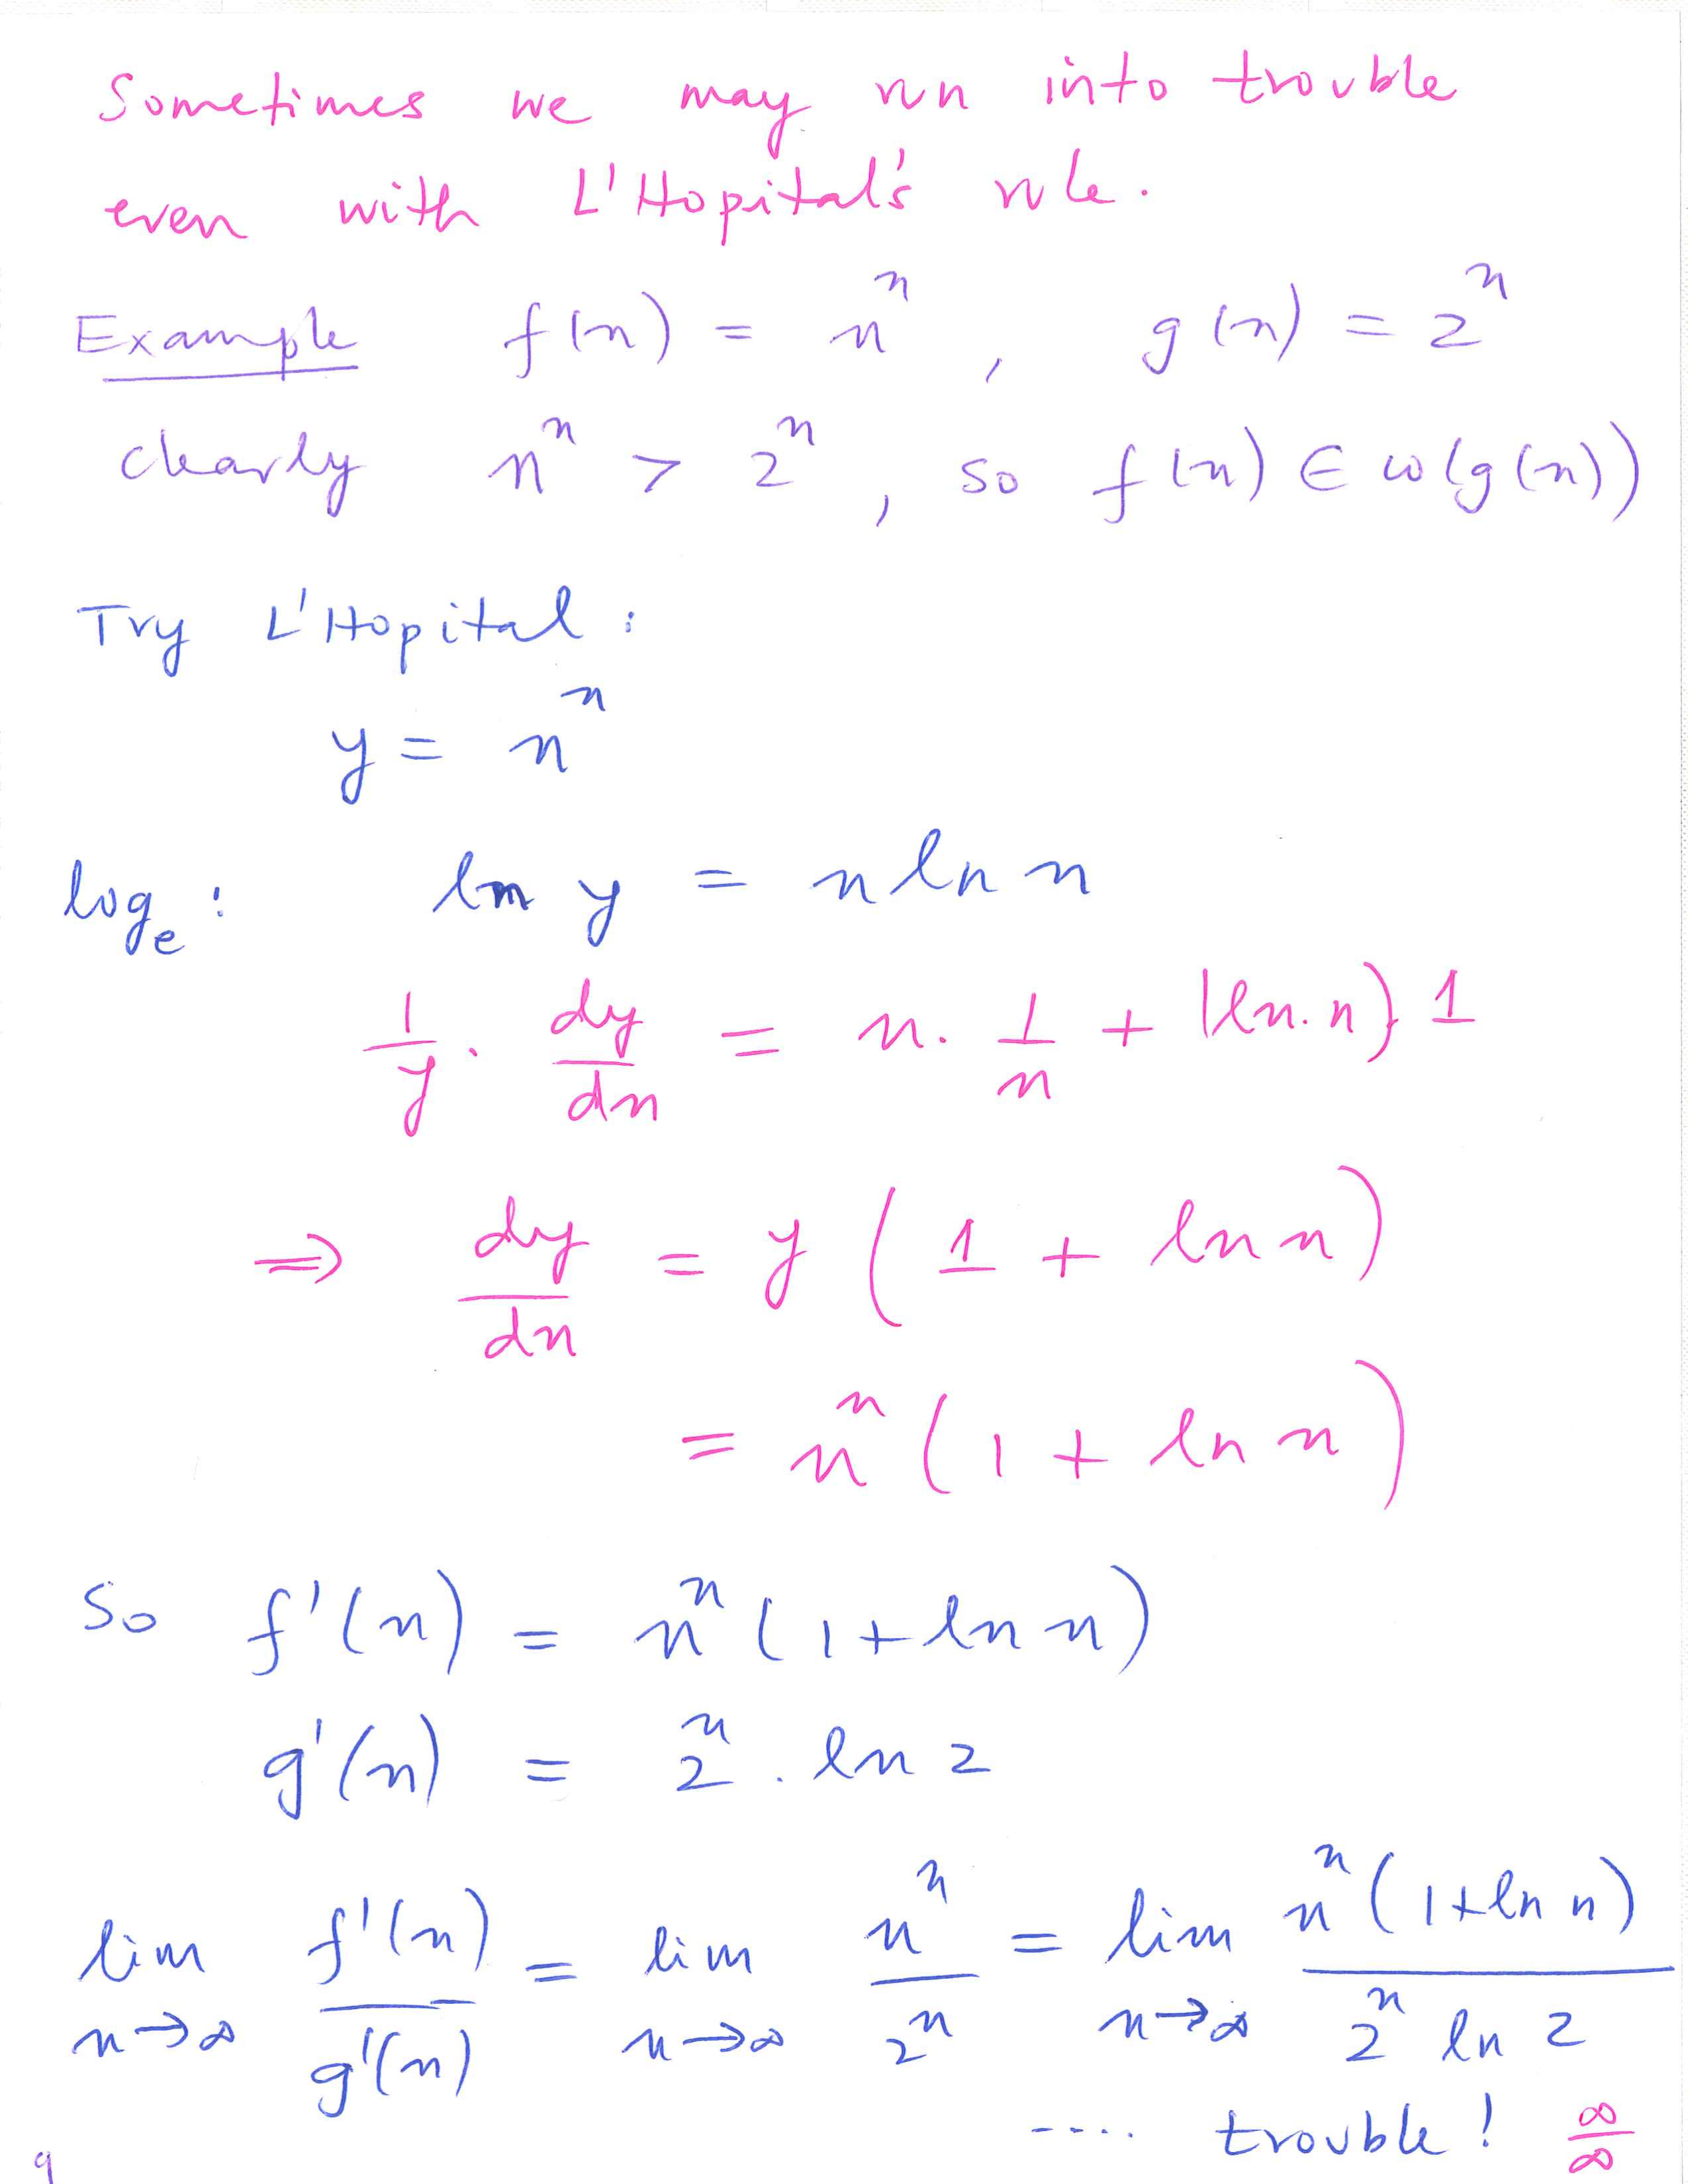 Sometimes we may run into trouble
even with L'Hopital's rule.
Example f(n) = n^n , g(n) = 2^n
clearly n^n > 2^n , so f(n) ∈ ω(g(n))
Try L'Hopital :
y = n^n
log_e : ln y = n ln n
1/y · dy/dn = n · 1/n + (ln n) 1
⇒ dy/dn = y (1 + ln n)
= n^n (1 + ln n)
So f'(n) = n^n (1 + ln n)
g'(n) = 2^n . ln 2
lim n→∞ f'(n)/g'(n) = lim n→∞ n^n/2^n = lim n→∞ n^n (1+ln n)/2^n ln 2
.... trouble! ∞/∞
9